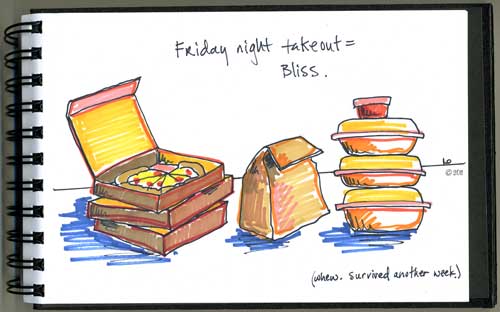 Friday night takeout =
Bliss.
LO
© 2011
(whew. survived another week.)